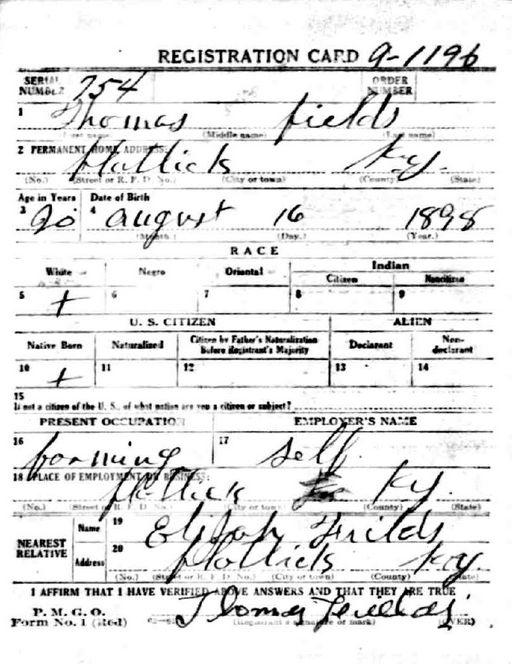 REGISTRATION CARD 9-1196
SERIAL NUMBER 754 ORDER NUMBER
1 Thomas fields
(First name) (Middle name) (Last name)
2 PERMANENT HOME ADDRESS:
Hollick Ky.
(No.) (Street or R. F. D. No.) (City or town) (County) (State)
Age in Years Date of Birth
3 20 4 August 16 1898
(Month.) (Day.) (Year.)
RACE
White Negro Oriental Indian
Citizen Noncitizen
5 + 6 7 8 9
U. S. CITIZEN ALIEN
Native Born Naturalized Citizen by Father's Naturalization Before Registrant's Majority Declarant Non-declarant
10 + 11 12 13 14
15
If not a citizen of the U. S., of what nation are you a citizen or subject?
PRESENT OCCUPATION EMPLOYER'S NAME
16 farming 17 self
18 PLACE OF EMPLOYMENT OR BUSINESS:
Hollick Ky.
(No.) (Street or R. F. D. No.) (City or town) (County) (State)
NEAREST RELATIVE Name 19 Elijah Fields
Address 20 Hollick Ky.
(No.) (Street or R. F. D. No.) (City or town) (County) (State)
I AFFIRM THAT I HAVE VERIFIED ABOVE ANSWERS AND THAT THEY ARE TRUE
P. M. G. O.
Form No. 1 (Red) Thomas Fields
(Registrant's signature or mark) (OVER)